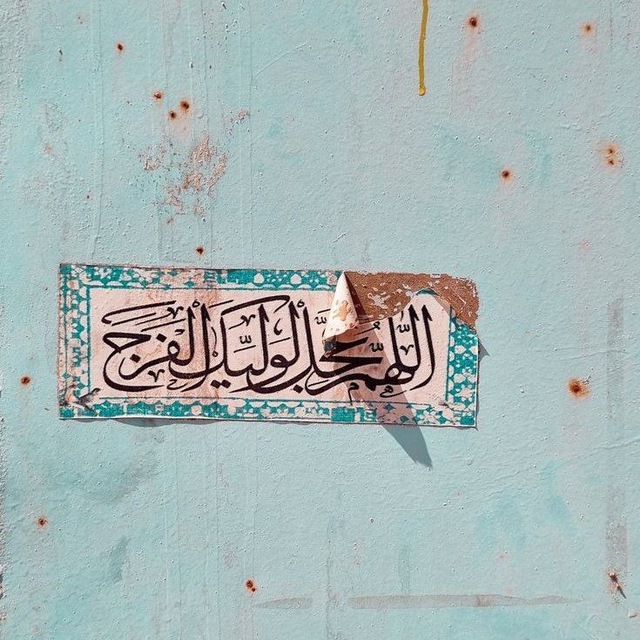 اللّٰهم عجّل لوليّك الفرج